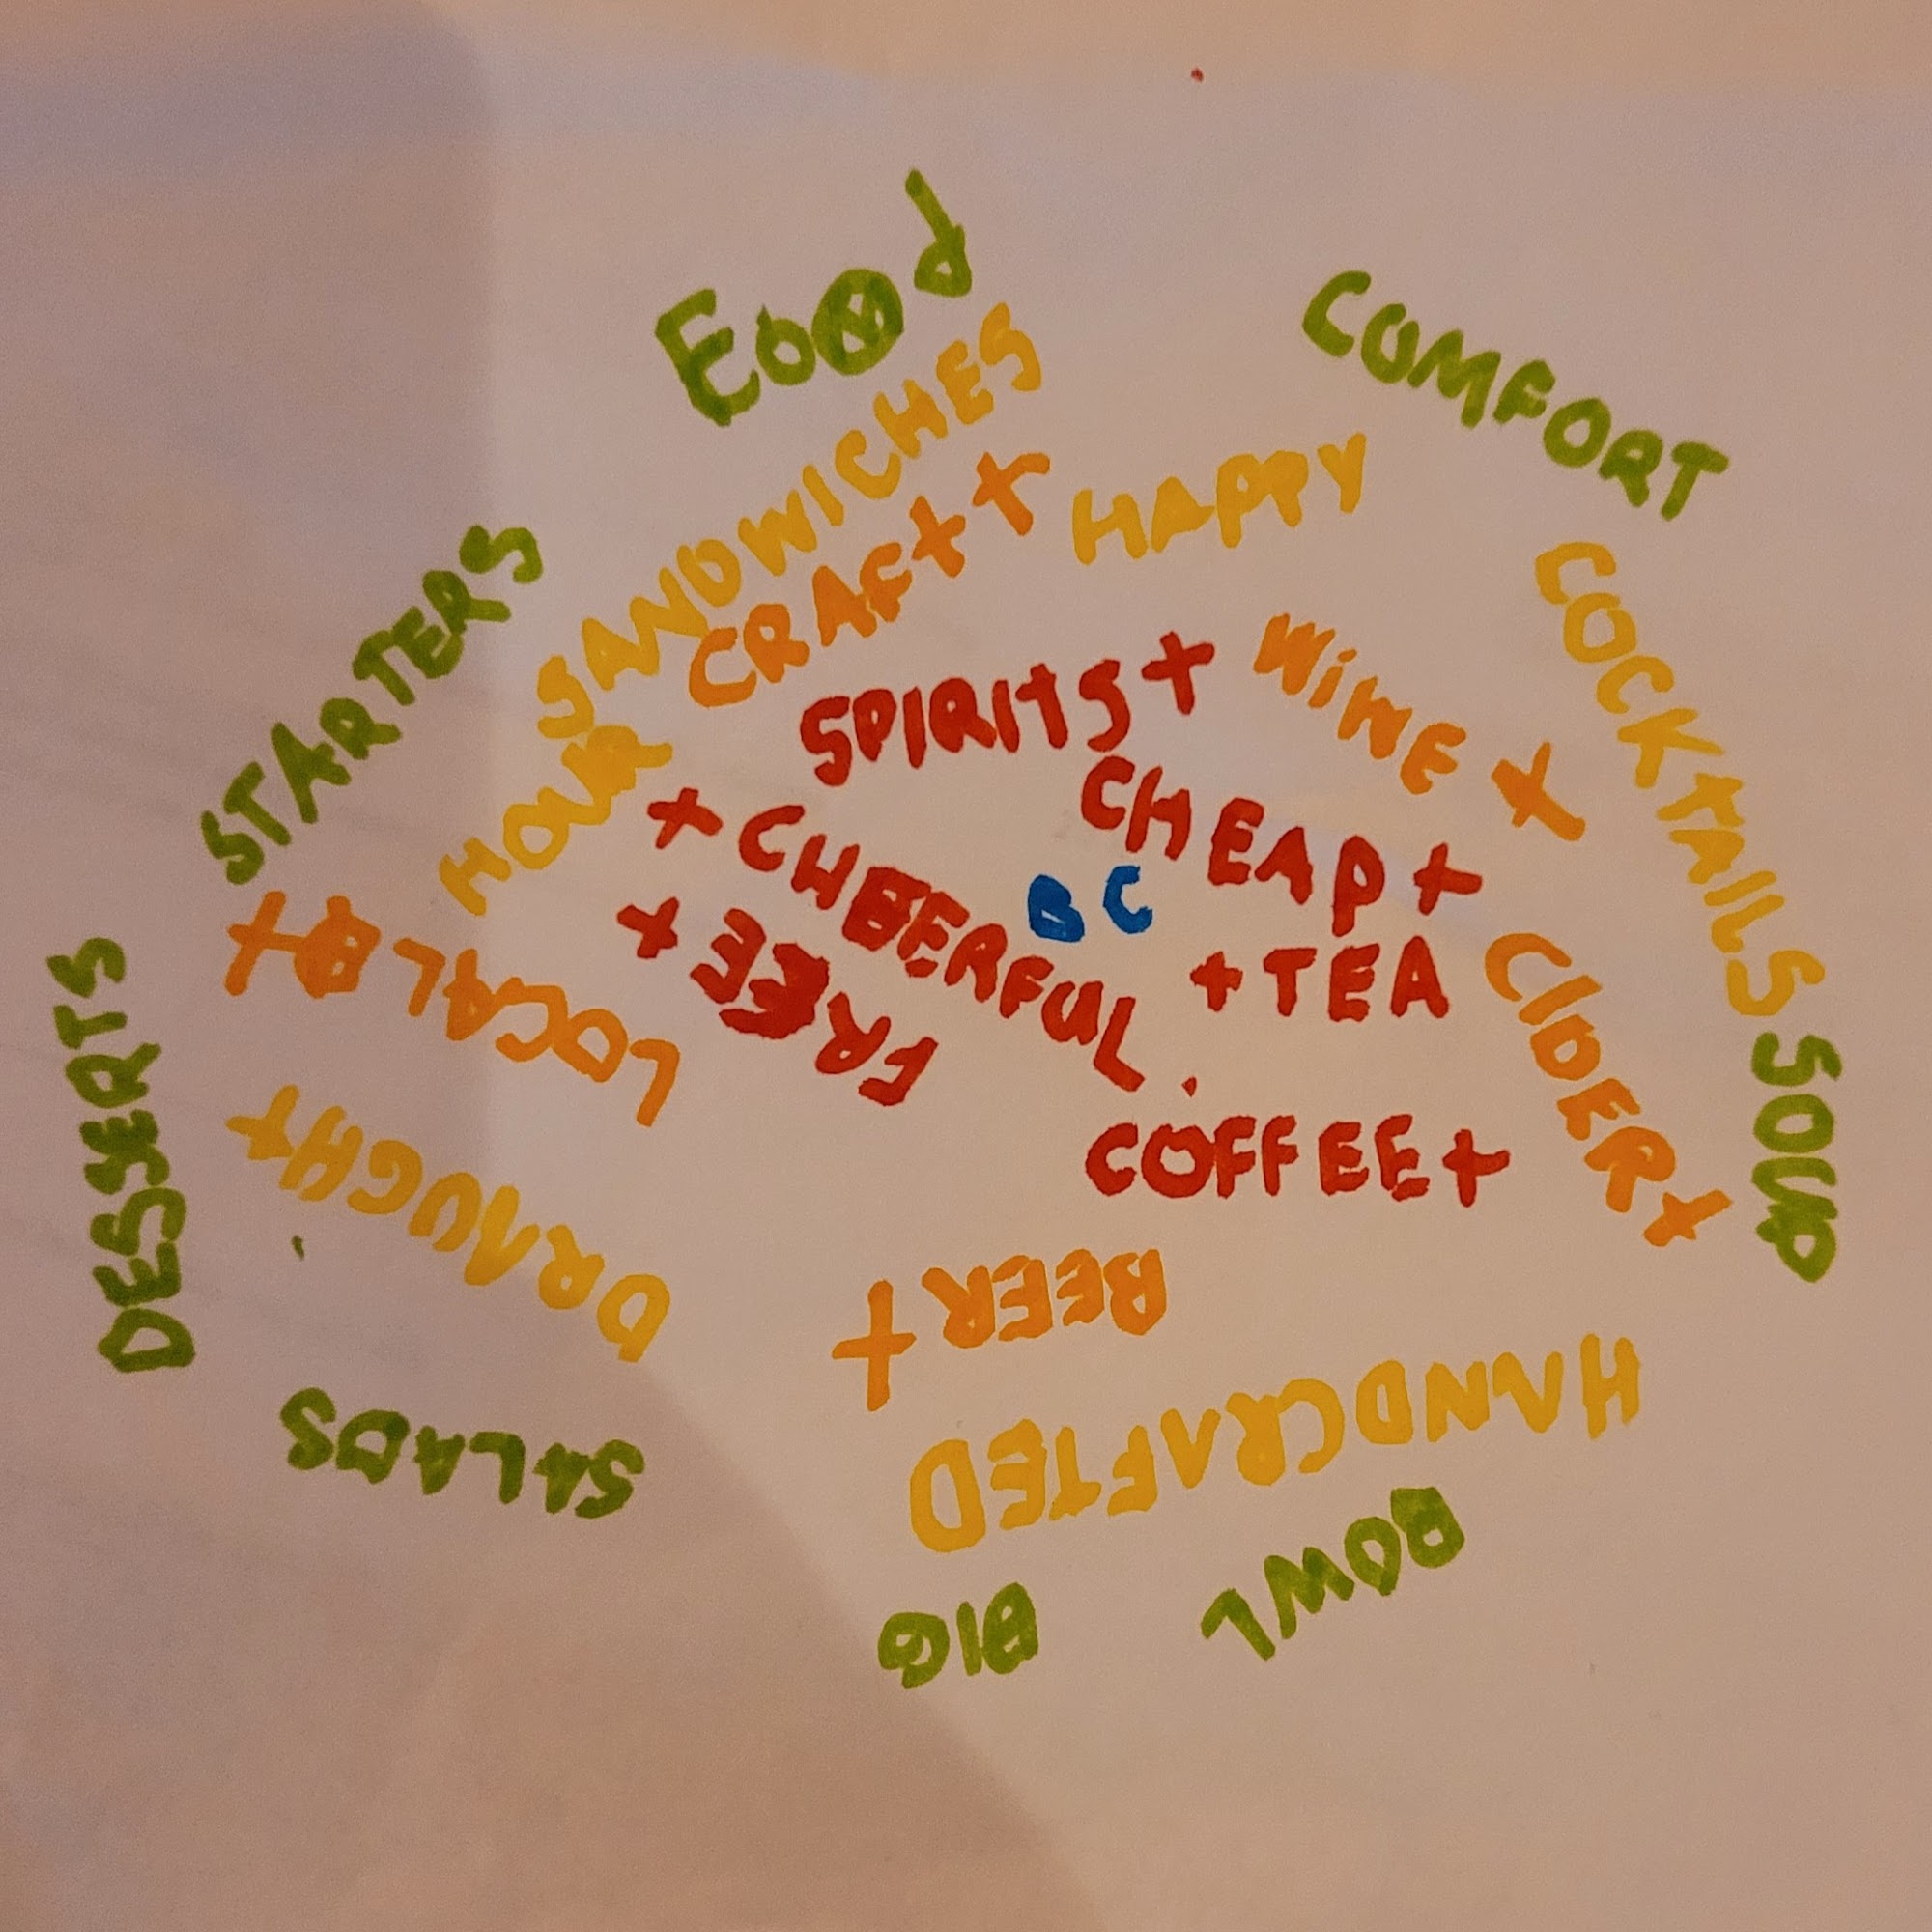 Food
COMFORT
SANDWICHES
CRAFT+
HAPPY
STARTERS
COCKTAILS
SPIRITS+
WINE +
HOUR
CHEAP+
+ CHEERFUL
BC
FREE +
+TEA
CIDER+
LOCAL
DESSERTS
SOUP
DRAUGHT
COFFEE+
BEER+
HANDCRAFTED
SALADS
BOWL
BIG